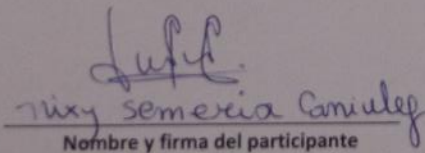 nixy semeria Caniulef
Nombre y firma del participante